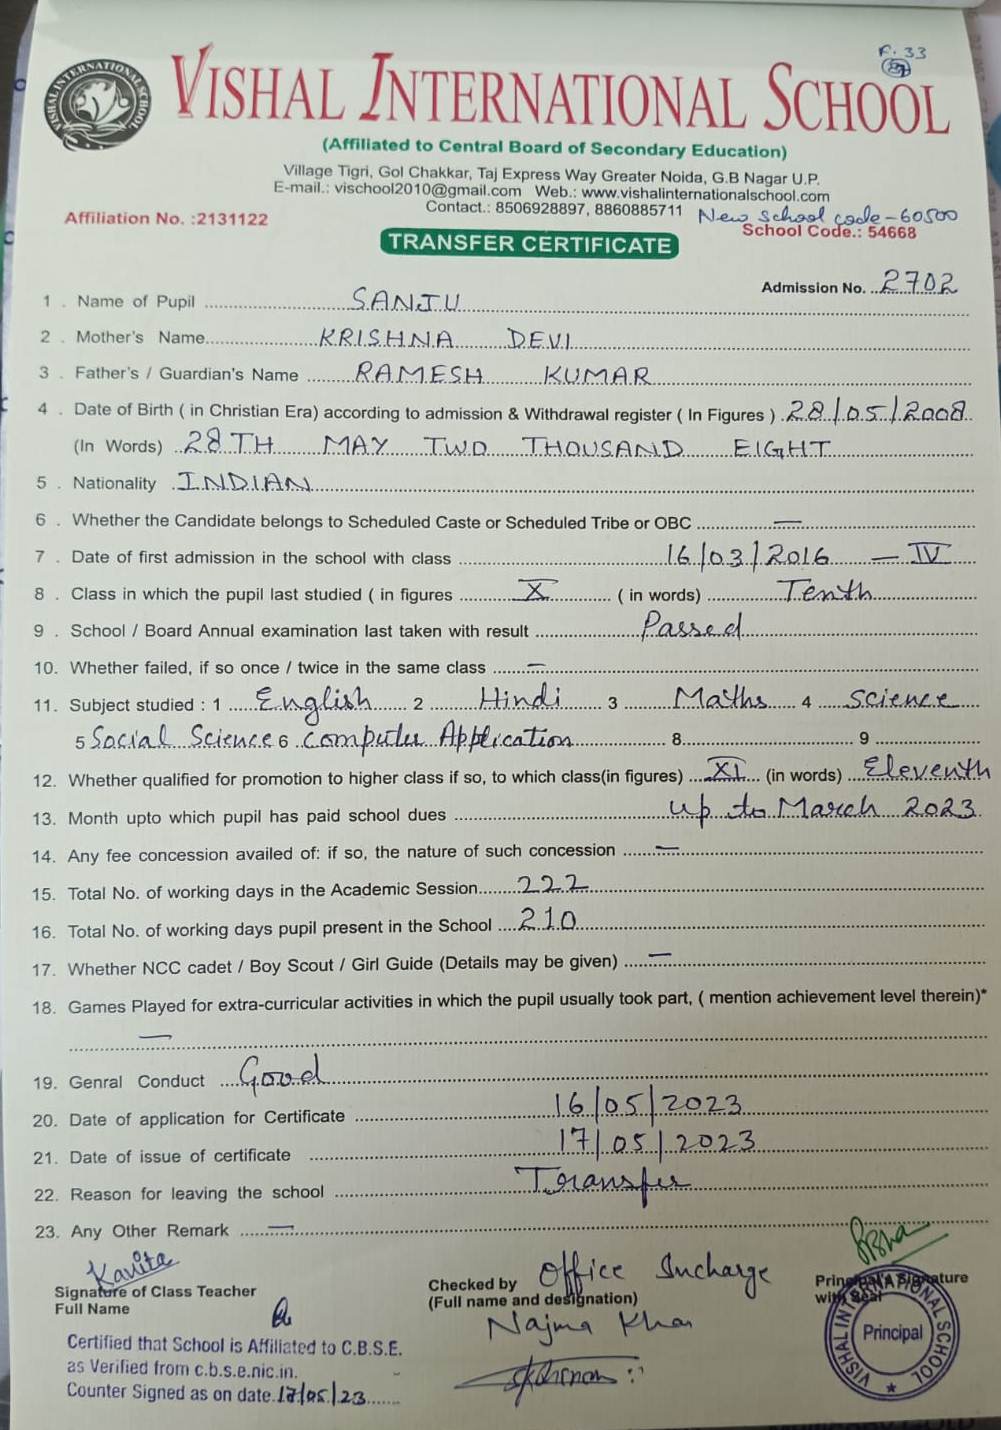 F. 33
VISHAL INTERNATIONAL SCHOOL
(Affiliated to Central Board of Secondary Education)
Village Tigri, Gol Chakkar, Taj Express Way Greater Noida, G.B Nagar U.P.
E-mail.: vischool2010@gmail.com Web.: www.vishalinternationalschool.com
Contact.: 8506928897, 8860885711 New School code - 60500
Affiliation No. :2131122 School Code.: 54668
TRANSFER CERTIFICATE
Admission No. 2702
1 . Name of Pupil SANJU
2 . Mother's Name KRISHNA DEVI
3 . Father's / Guardian's Name RAMESH KUMAR
4 . Date of Birth ( in Christian Era) according to admission & Withdrawal register ( In Figures ) 28/05/2008
(In Words) 28TH MAY TWO THOUSAND EIGHT
5 . Nationality INDIAN
6 . Whether the Candidate belongs to Scheduled Caste or Scheduled Tribe or OBC —
7 . Date of first admission in the school with class 16/03/2016 — IV
8 . Class in which the pupil last studied ( in figures X ( in words) Tenth
9 . School / Board Annual examination last taken with result Passed
10. Whether failed, if so once / twice in the same class —
11. Subject studied : 1 English 2 Hindi 3 Maths 4 Science
5 Social Science 6 Computer Application 8 9
12. Whether qualified for promotion to higher class if so, to which class(in figures) XI (in words) Eleventh
13. Month upto which pupil has paid school dues up to March 2023
14. Any fee concession availed of: if so, the nature of such concession —
15. Total No. of working days in the Academic Session 222
16. Total No. of working days pupil present in the School 210
17. Whether NCC cadet / Boy Scout / Girl Guide (Details may be given) —
18. Games Played for extra-curricular activities in which the pupil usually took part, ( mention achievement level therein)*
—
19. Genral Conduct Good
20. Date of application for Certificate 16/05/2023
21. Date of issue of certificate 17/05/2023
22. Reason for leaving the school Transfer
23. Any Other Remark —
Kavita
Signature of Class Teacher
Full Name
Checked by Office Incharge
(Full name and designation)
Najma Khan
Principal's Signature
with Seal
VISHAL INTERNATIONAL SCHOOL
Principal
Certified that School is Affiliated to C.B.S.E.
as Verified from c.b.s.e.nic.in.
Counter Signed as on date 17/05/23